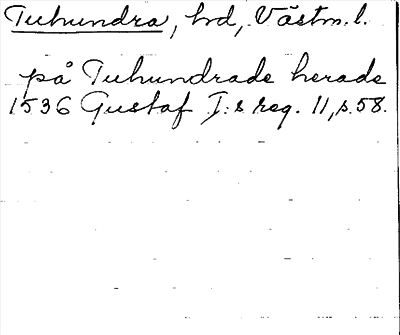 Tuhundra, hrd, Västm. l.
på Tuhundrade herade
1536 Gustaf I:s reg. 11, s. 58.